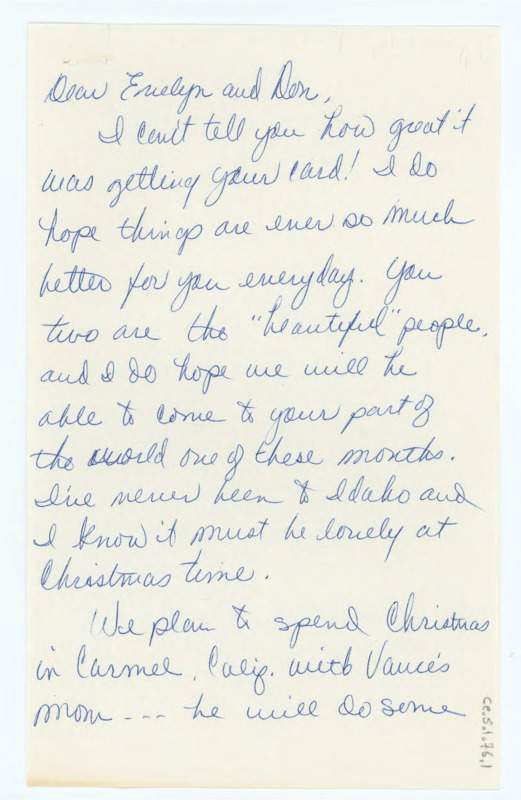 Dear Evelyn and Don,
I can't tell you how great it
was getting your card! I do
hope things are ever so much
better for you everyday. You
two are the "beautiful" people,
and I do hope we will be
able to come to your part of
the world one of these months.
I've never been to Idaho and
I know it must be lovely at
Christmas time.
We plan to spend Christmas
in Carmel, Calif. with Vance's
mom --- he will do some
Ce.5.1.76.1